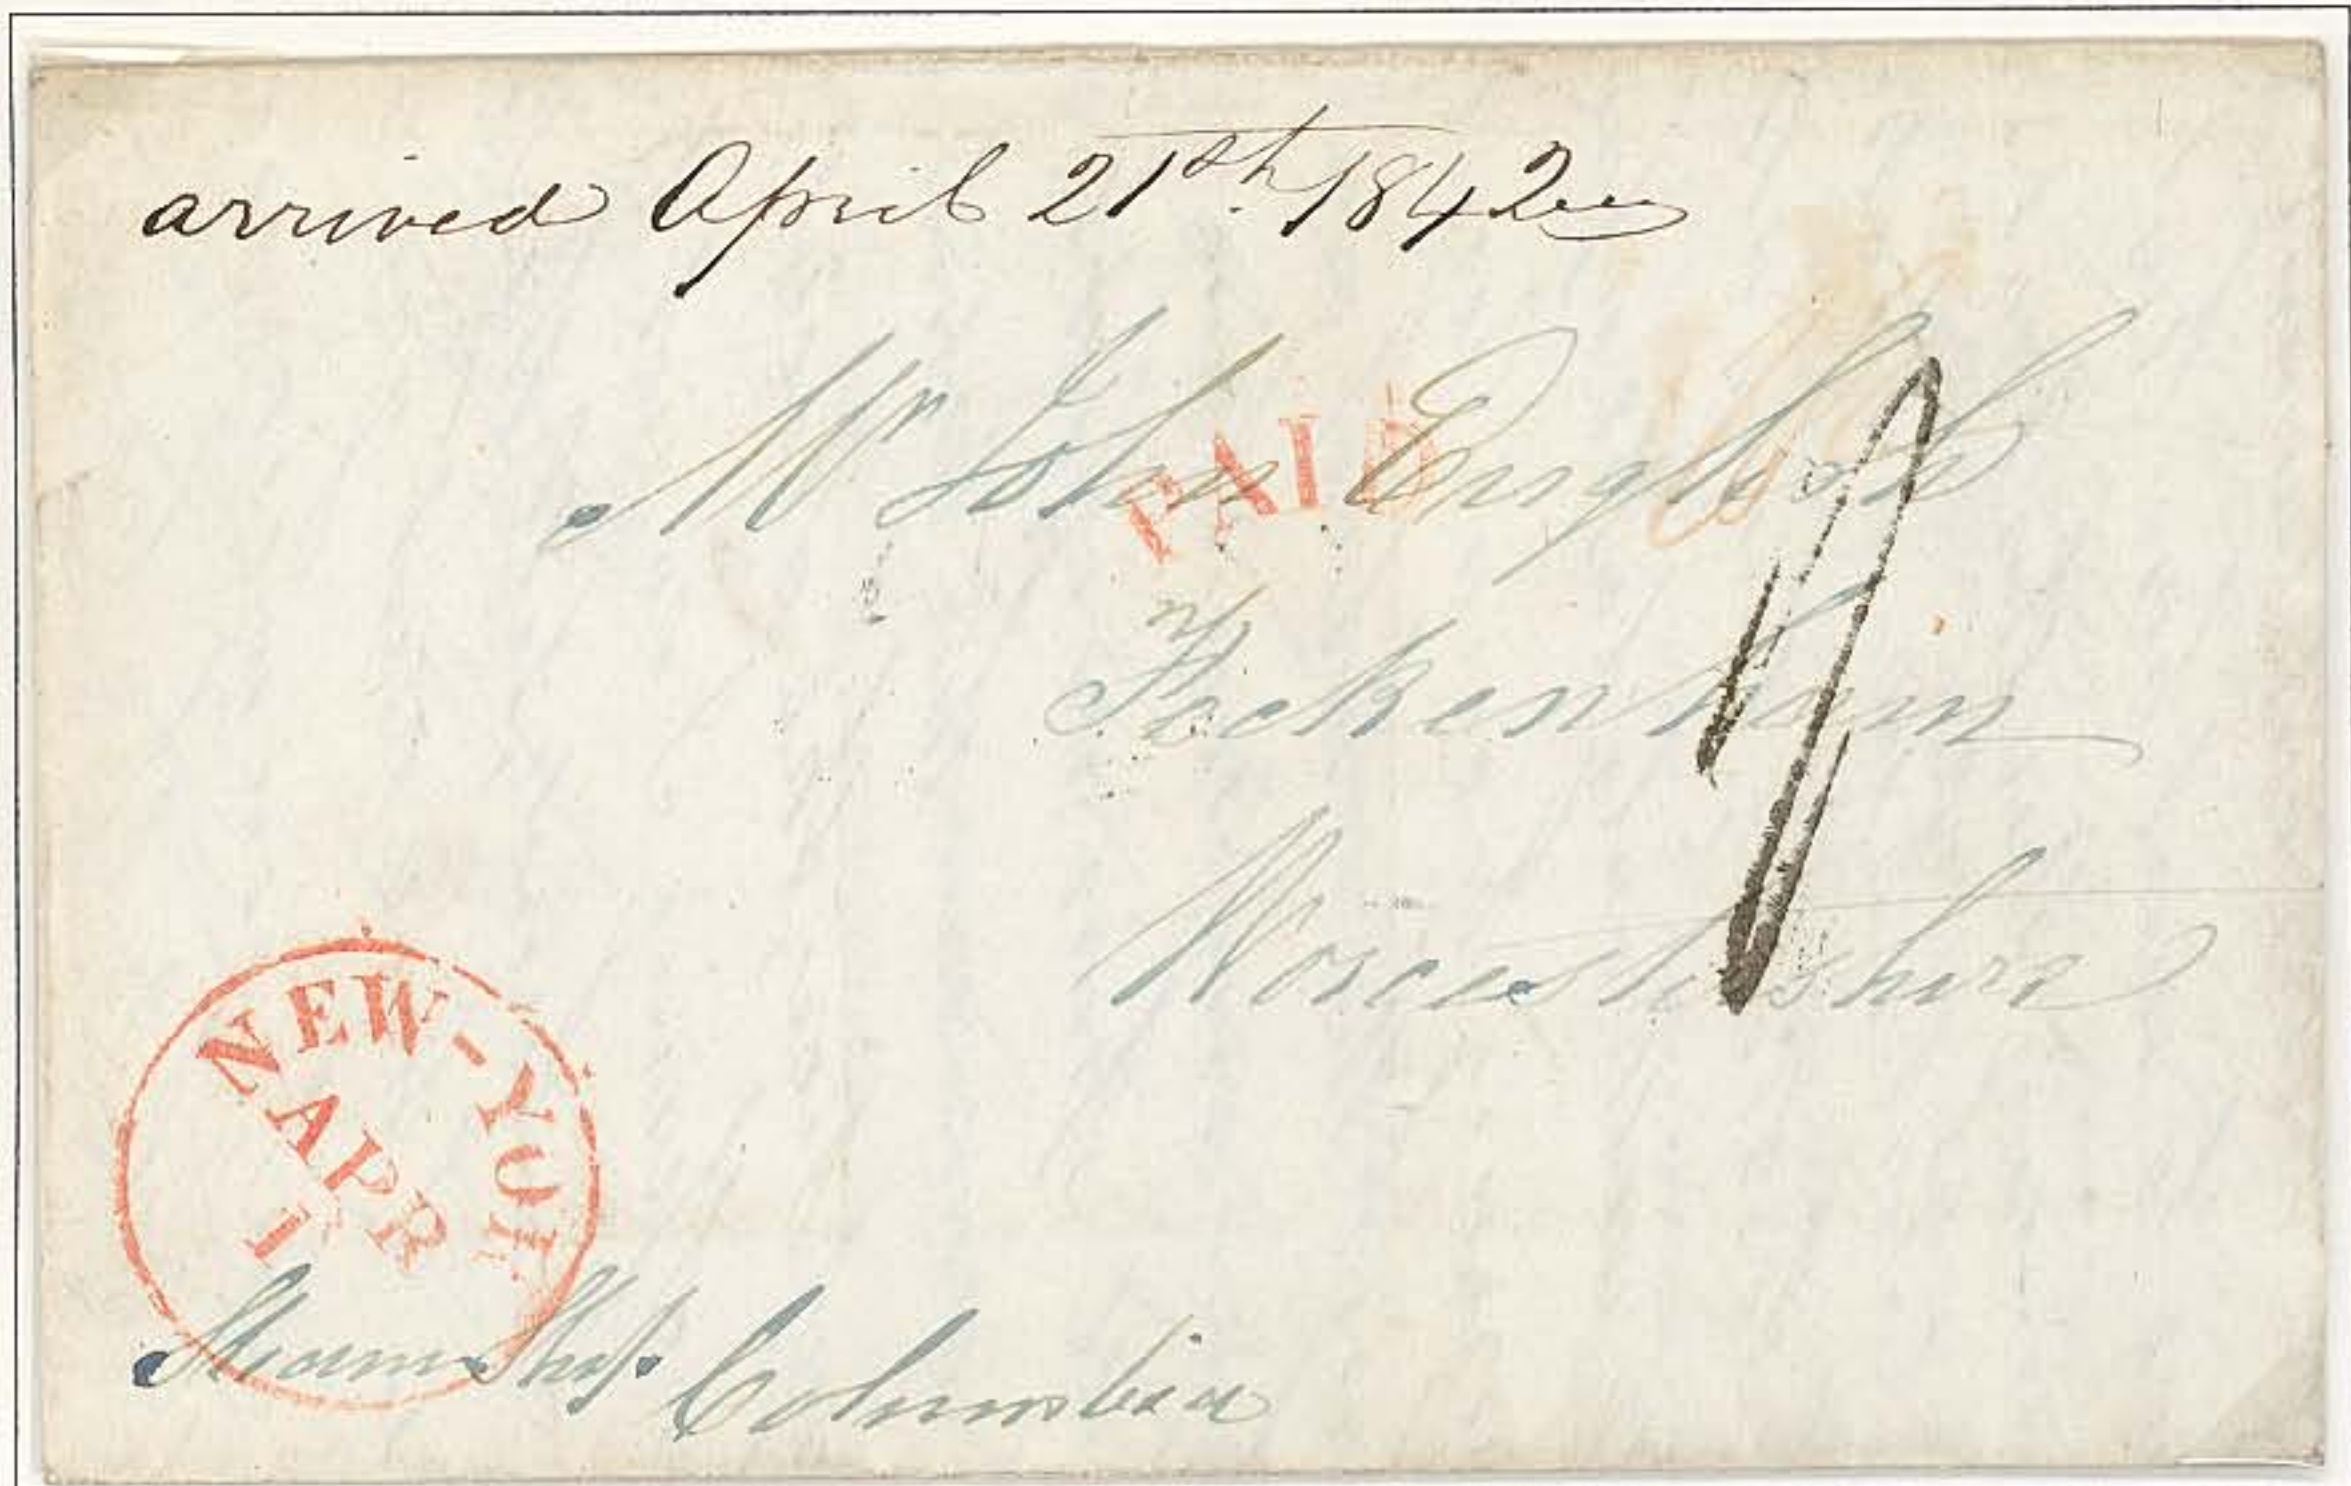 arrived April 21st. 1842
Mr John English
PAID
Feckenham
nr
Worcestershire
NEW-YOR
APR
1
Steam Ship Columbia